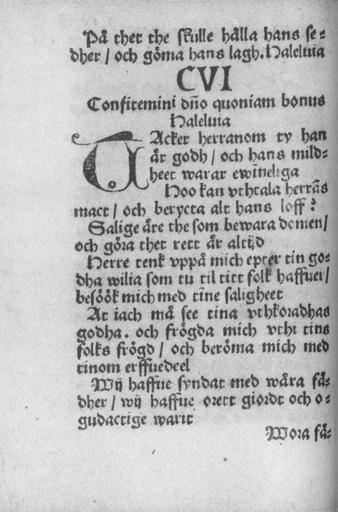 På thet the skulle hålla hans se⸗
dher / och göma hans lagh. Haleluia
CVI
Confitemini dño quoniam bonus
Haleluia
TAcker herranom ty han
är godh / och hans mild⸗
heet warar ewineliga
Hoo kan vthtala herrās
mact / och berycta alt hans loff?
Salige äre the som bewara domen /
och göra thet rett är altijd
Herre tenk vppå mich epter tin go⸗
dha wilia som tu til titt folk haffuer /
besöök mich med tine saligheet
At iach må see tina vthkoradhas
godha. och frögda mich vthi tins
folks frögd / och beröma mich med
tinom erffuedeel
Wij haffue syndat med wåra fä⸗
dher / wij haffue orett giordt och o⸗
gudactige warit
Wora fä⸗